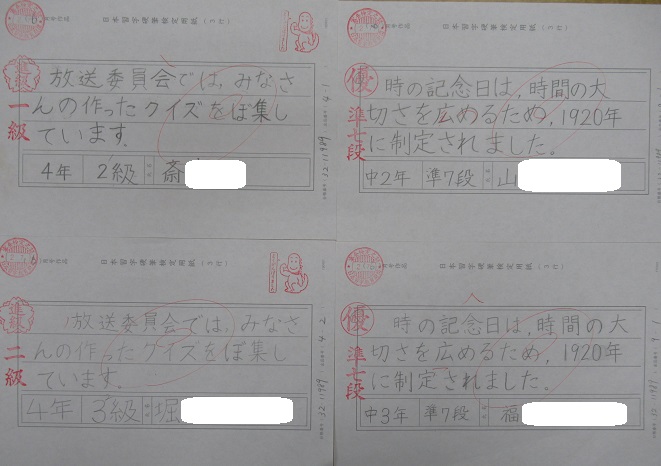 日本習字硬筆検定用紙(3行)
放送委員会では,みなさ
んの作ったクイズをぼ集し
ています.
進級
一級
4年 2級 斎
日本習字硬筆検定用紙(3行)
時の記念日は,時間の大
切さを広めるため,1920年
に制定されました。
優
準七段
中2年 準7段 山
日本習字硬筆検定用紙(3行)
放送委員会では,みなさ
んの作ったクイズをぼ集し
ています.
進級
二級
4年 3級 堀
日本習字硬筆検定用紙(3行)
時の記念日は,時間の大
切さを広めるため,1920年
に制定されました。
優
準七段
中3年 準7段 福